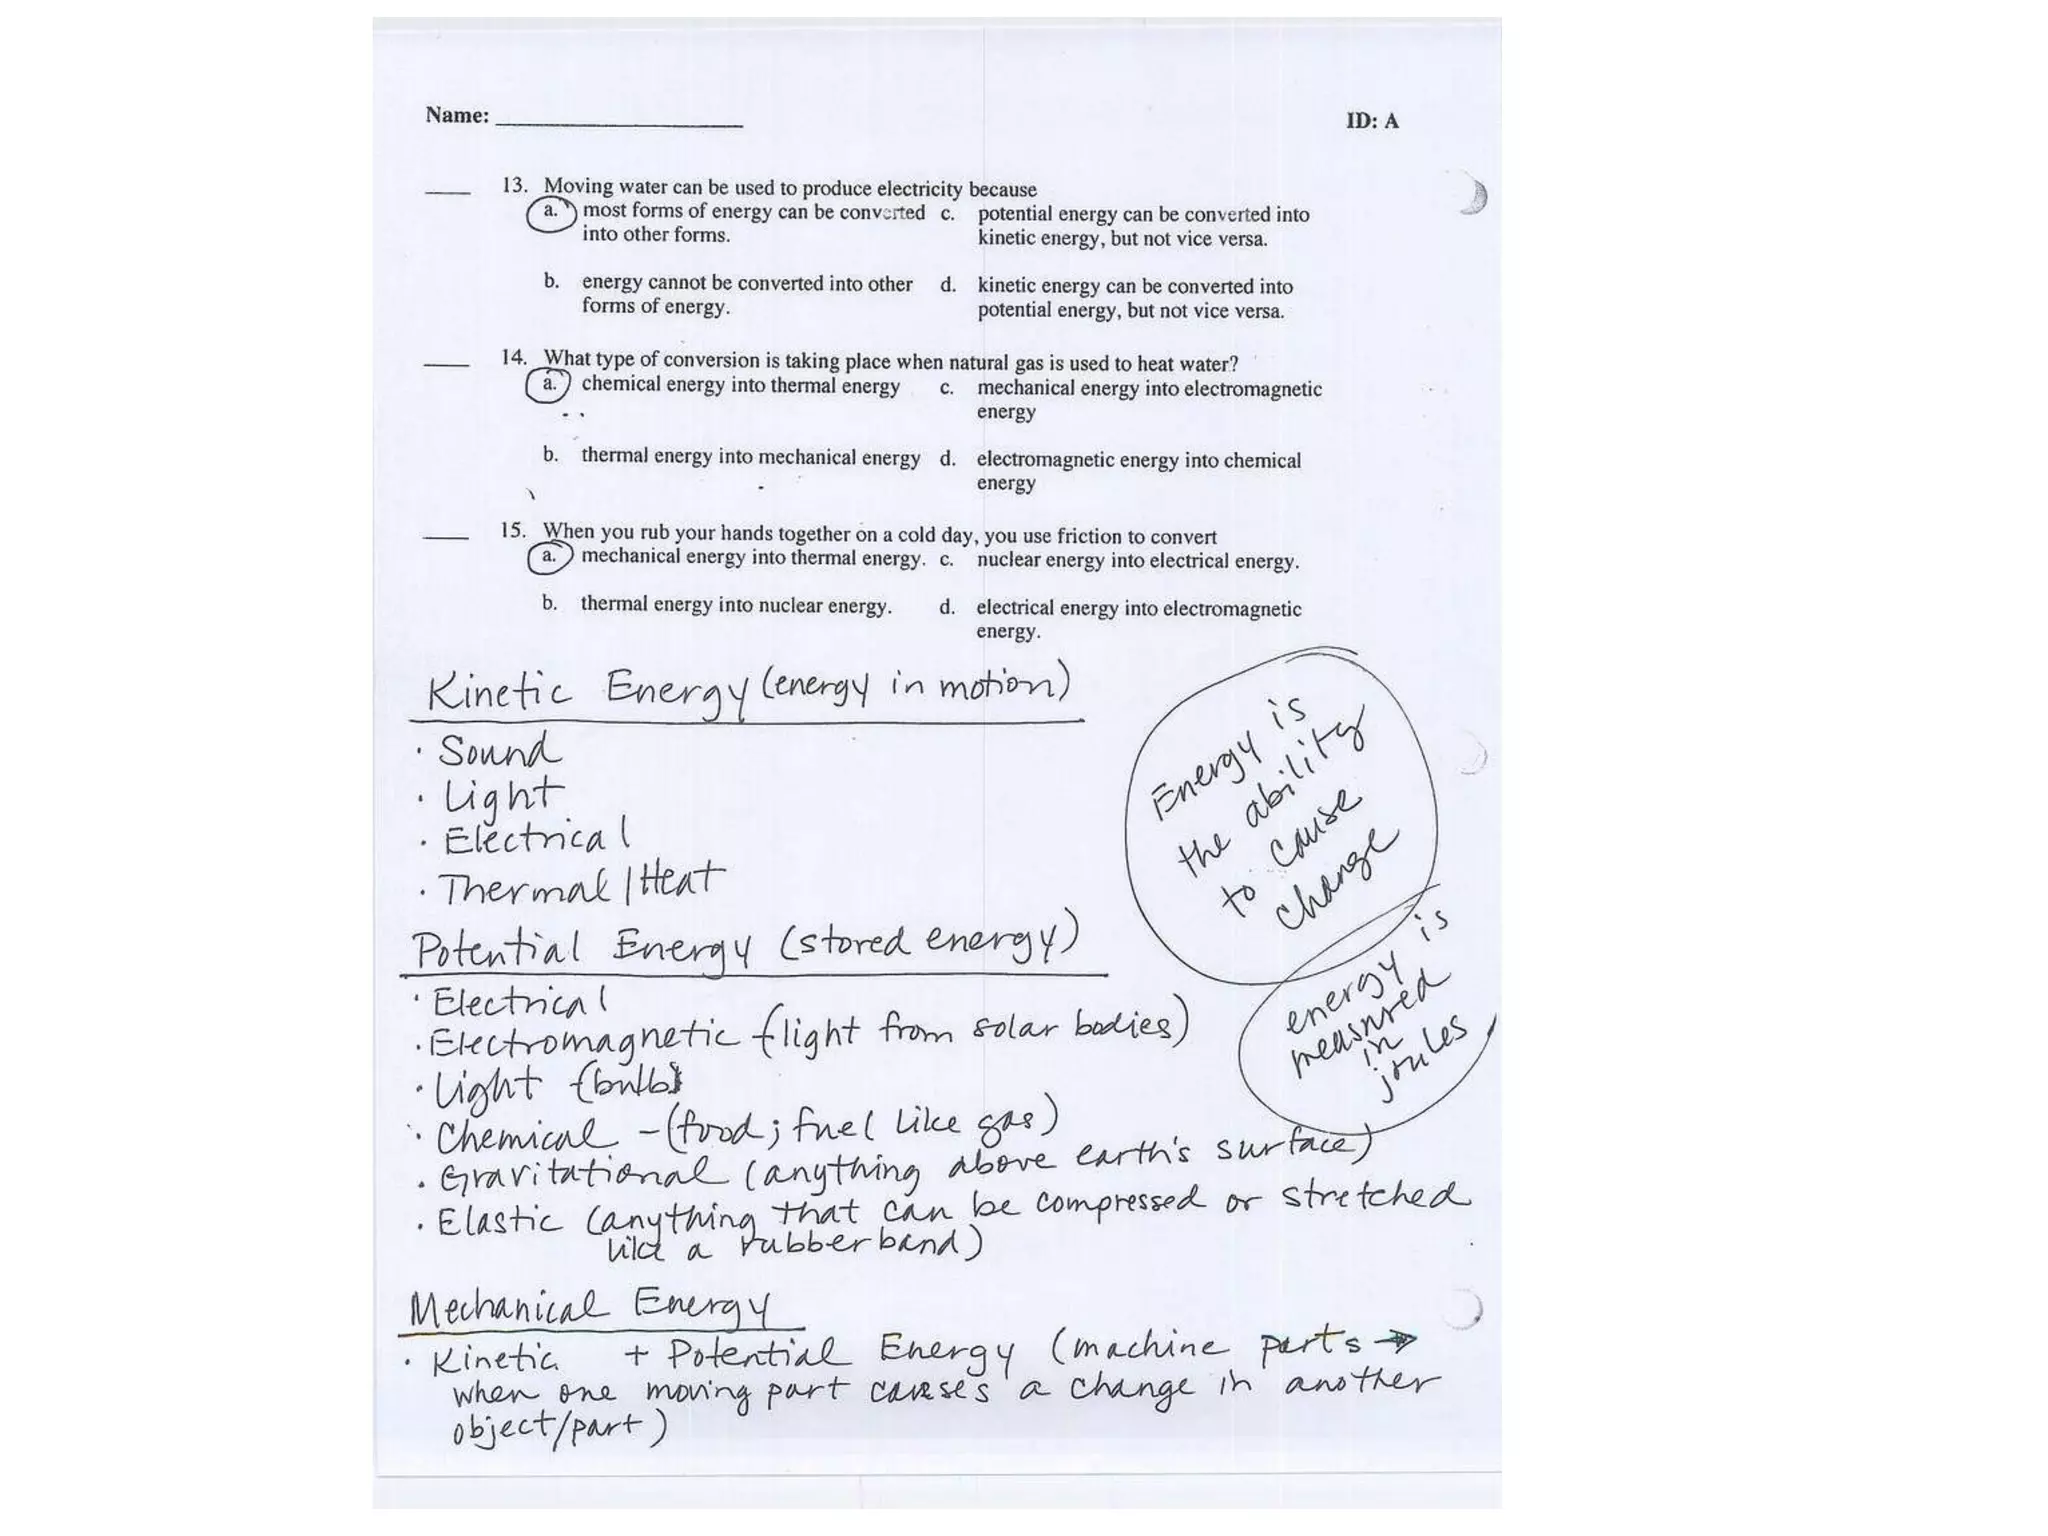 Name: ____________ ID: A
____ 13. Moving water can be used to produce electricity because
a. most forms of energy can be converted into other forms.
c. potential energy can be converted into kinetic energy, but not vice versa.
b. energy cannot be converted into other forms of energy.
d. kinetic energy can be converted into potential energy, but not vice versa.
____ 14. What type of conversion is taking place when natural gas is used to heat water?
a. chemical energy into thermal energy
c. mechanical energy into electromagnetic energy
b. thermal energy into mechanical energy
d. electromagnetic energy into chemical energy
____ 15. When you rub your hands together on a cold day, you use friction to convert
a. mechanical energy into thermal energy.
c. nuclear energy into electrical energy.
b. thermal energy into nuclear energy.
d. electrical energy into electromagnetic energy.
Kinetic Energy (energy in motion)
· Sound
· Light
· Electrical
· Thermal / Heat
Energy is
the ability
to cause
change
energy is
measured
in
joules
Potential Energy (stored energy)
· Electrical
· Electromagnetic (light from solar bodies)
· Light (bulb)
· Chemical - (food; fuel like gas)
· Gravitational (anything above earth's surface)
· Elastic (anything that can be compressed or stretched
like a rubber band)
Mechanical Energy
· Kinetic + Potential Energy (machine parts →
when one moving part causes a change in another
object/part)